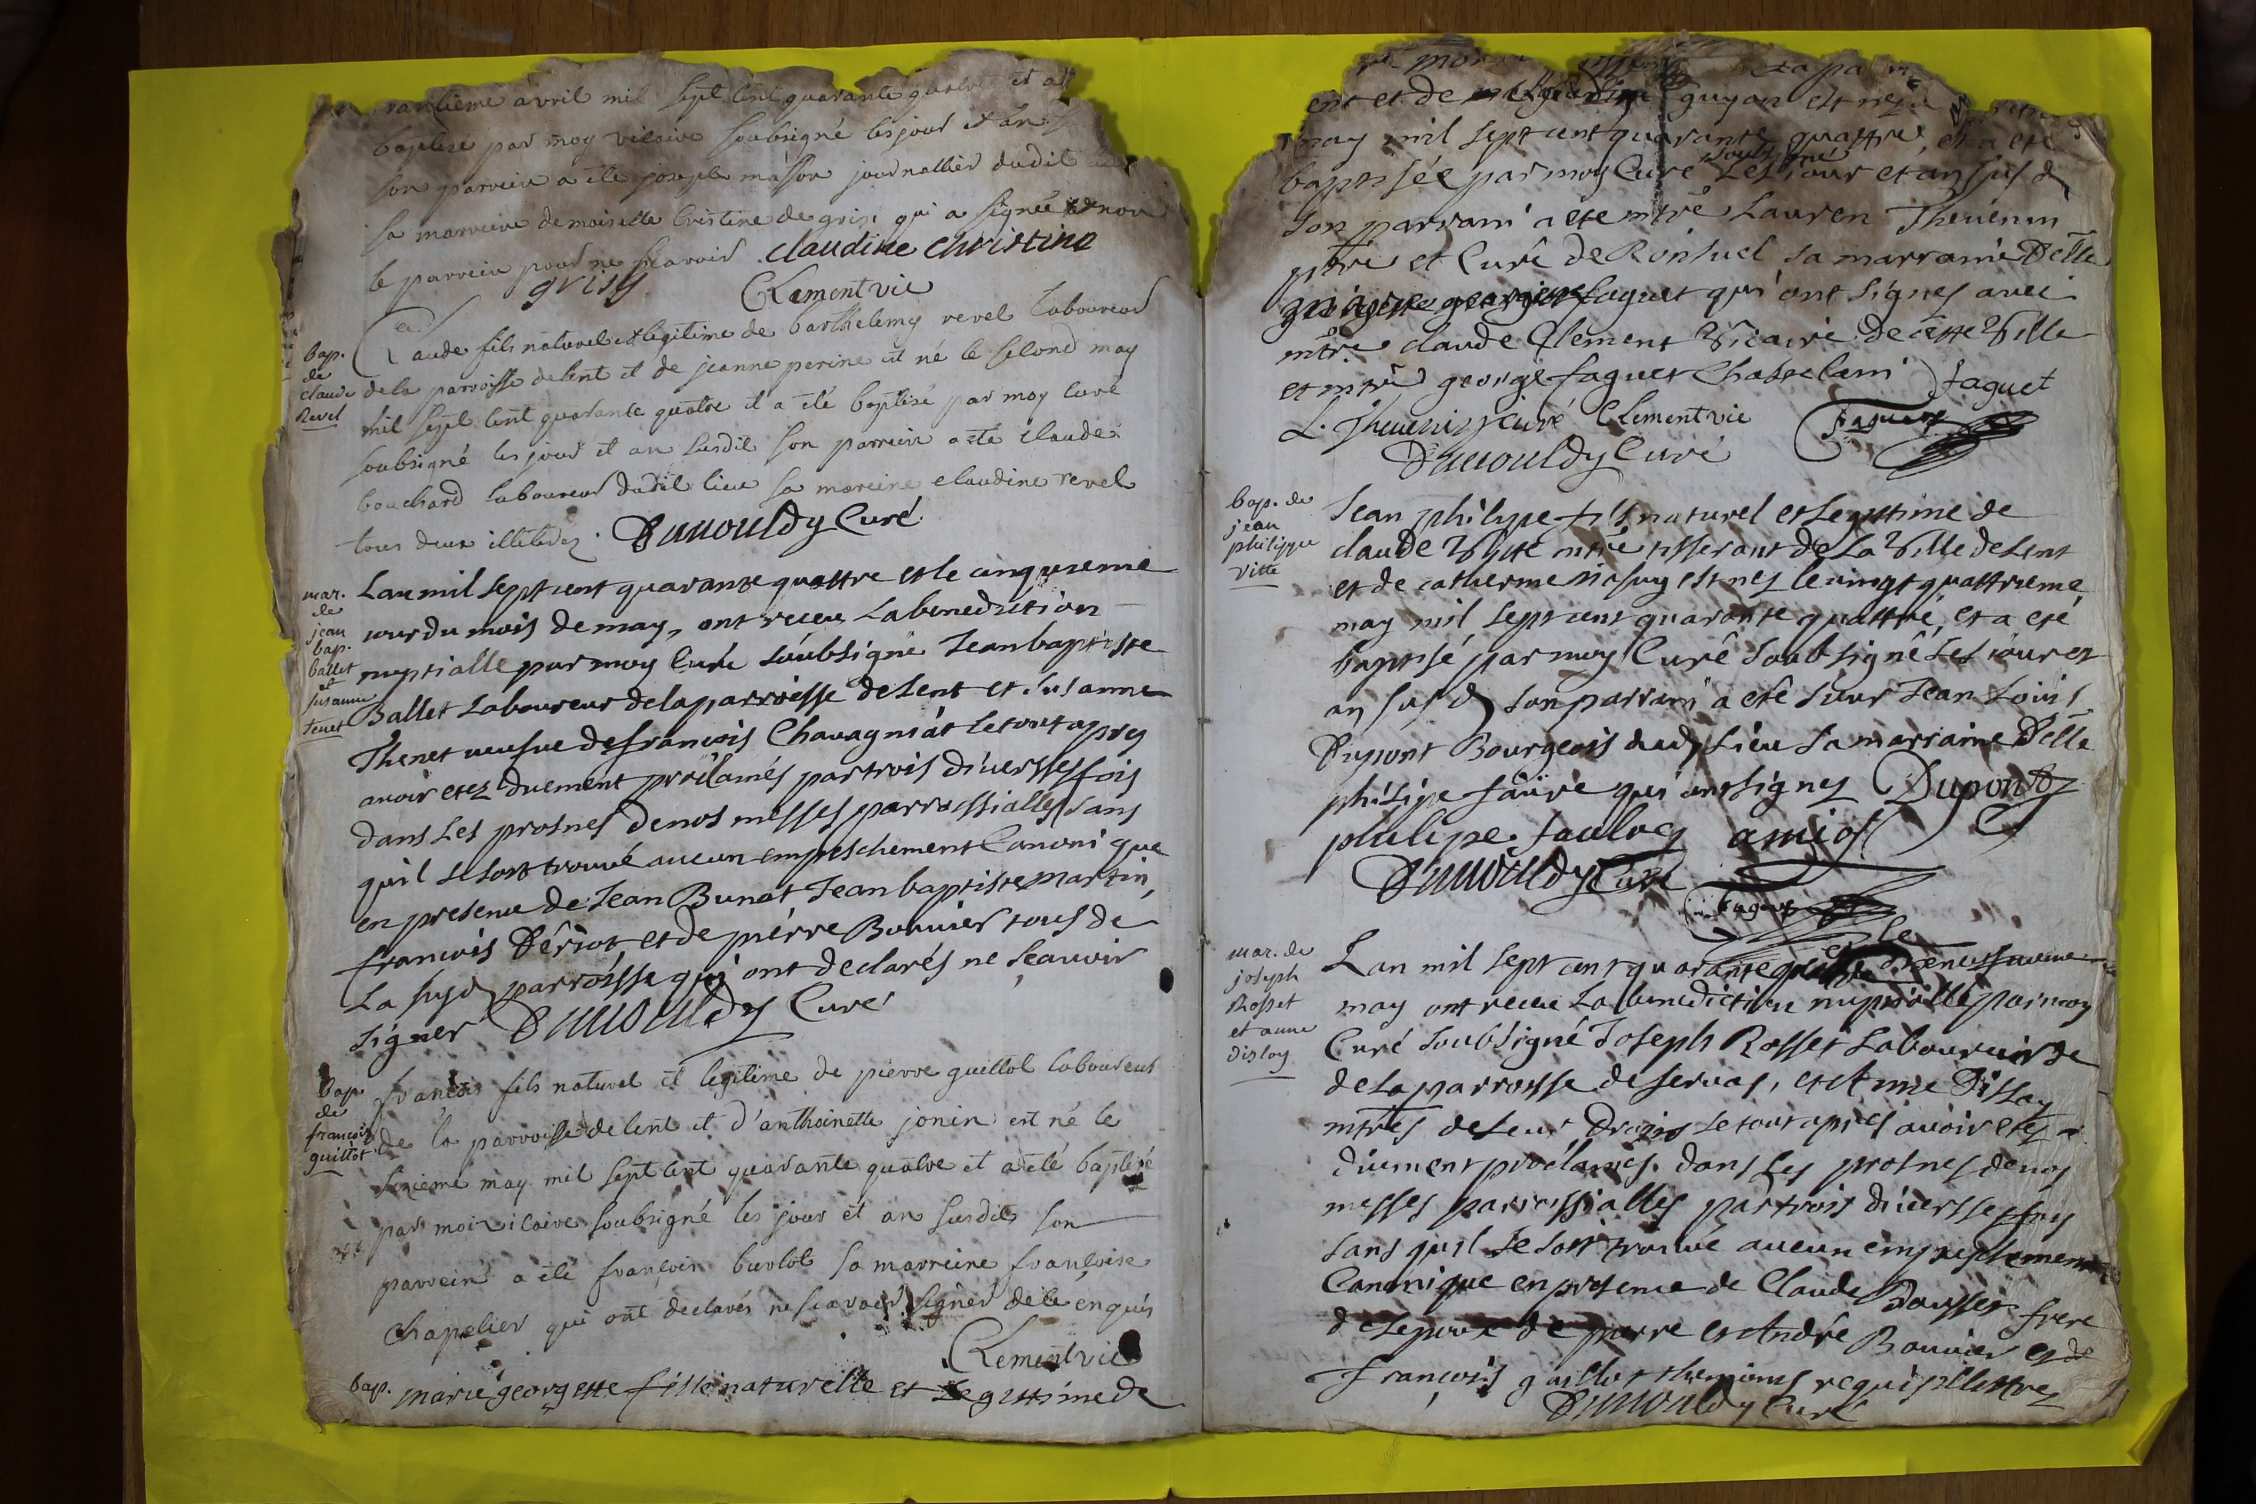 avril mil sept cent quarante quatre et a
baptisé par moy vicaire soubsigné les jour et an
son parrein a été joseph masson journallier dudit
sa marreine demoiselle cristine de grisi qui a signée et non
le parrein pour ne sçavoir . claudine christine
grisy Clement vic
Claude fils naturel et legitime de barthelemy revel laboureur
bap.
de
claude
Revel
de la parroisse de lent et de jeanne perine est né le second may
mil sept cent quarante quatre et a été baptisé par moy curé
soubsigné les jour et an susdit son parrein a été claude
bouchard laboureur dudit lieu sa mareine claudine revel
tous deux illiterez . Dumouldy Curé
mar.
de
jean
bap.
ballet
et
susanne
tenet
Lan mil sept cent quarante quattre et le cinquieme
jour du mois de may, ont receu La benediction
nuptialle par moy Curé soubsigné Jean baptiste
Ballet Laboureur de la parroisse de Lent et susanne
Thenet veufve de francois Chavagniat le tout apres
avoir etez duement proclamés par trois diversses fois
dans les prosnes de nos messes parrossialles sans
quil se soit trouvé aucun empeschement Canonique
en presence de Jean Bunat Jean baptiste martin,
francois Périot et de piérre Bonnier tous de
La susd parroisse qui ont declarés ne sçauoir
signer Dumouldy Curé
bap.
de
françois
guillot
francois fils naturel et legitime de pierre guillot laboureur
de la parroisse de lent et d'anthoinette jonin est né le
sixieme may mil sept cent quarante quatre et a été baptisé
par moi vicaire soubsigné les jour et an susdits son
parrein a été françois burlot sa marreine françoise
Chapelier qui ont declarés ne sçavoir signer de ce enquis
Clement vic
bap. marie georgette fille naturelle et Legittime de
ent et de guyon est nez
may mil sept cent quarante quattre, et a eté
baptisée par moy Curé soubsigné Les jour et an sus d
son parrain a été mtre Lauren Thevenin
ptre et Curé de Ronsuel sa marraine Delle
georgette faguet qui ont signes avec
mtre claude Clement Vicaire de cette Ville
et mtre george faguet Chatelain faguet
L. Thevenin Curé Clement vic faguet
Dumouldy Curé
bap. de
jean
philippe
vitte
Jean philipe fils naturel et Legittime de
claude Vitte mtre tisserant de La Ville de Lent
et de catherine est nez le vingt quattrieme
may mil sept cent quarante quattre, et a eté
baptisé par moy Curé soubsigné Les jour et
an sus d son parrain a eté sieur Jean Louis
Dupont Bourgeois dud lieu sa marraine Delle
philipe faure qui ont signes Dupont
philipe amiot
Dumouldy Curé faguet
mar. de
joseph
Rosset
et anne
disloy
Lan mil sept cent quarante quattre et le dixneufvieme
may ont receu La benediction nuptialle par moy
Curé soubsigné Joseph Rosset Laboureur de
de La parroisse de servas, et Anne Dislay
mtres de Leur Droits le tout après avoir etez
duement proclamés. dans Les prosnes de nos
messes parrossialles par trois diversses foys
sans quil se soit trouvé aucun empeschement
Canonique en presence de Claude Rousset frere
de Lepoux de pierre et André Bonnier et de
francois guillot themoins requis illittrez
Dumouldy Curé